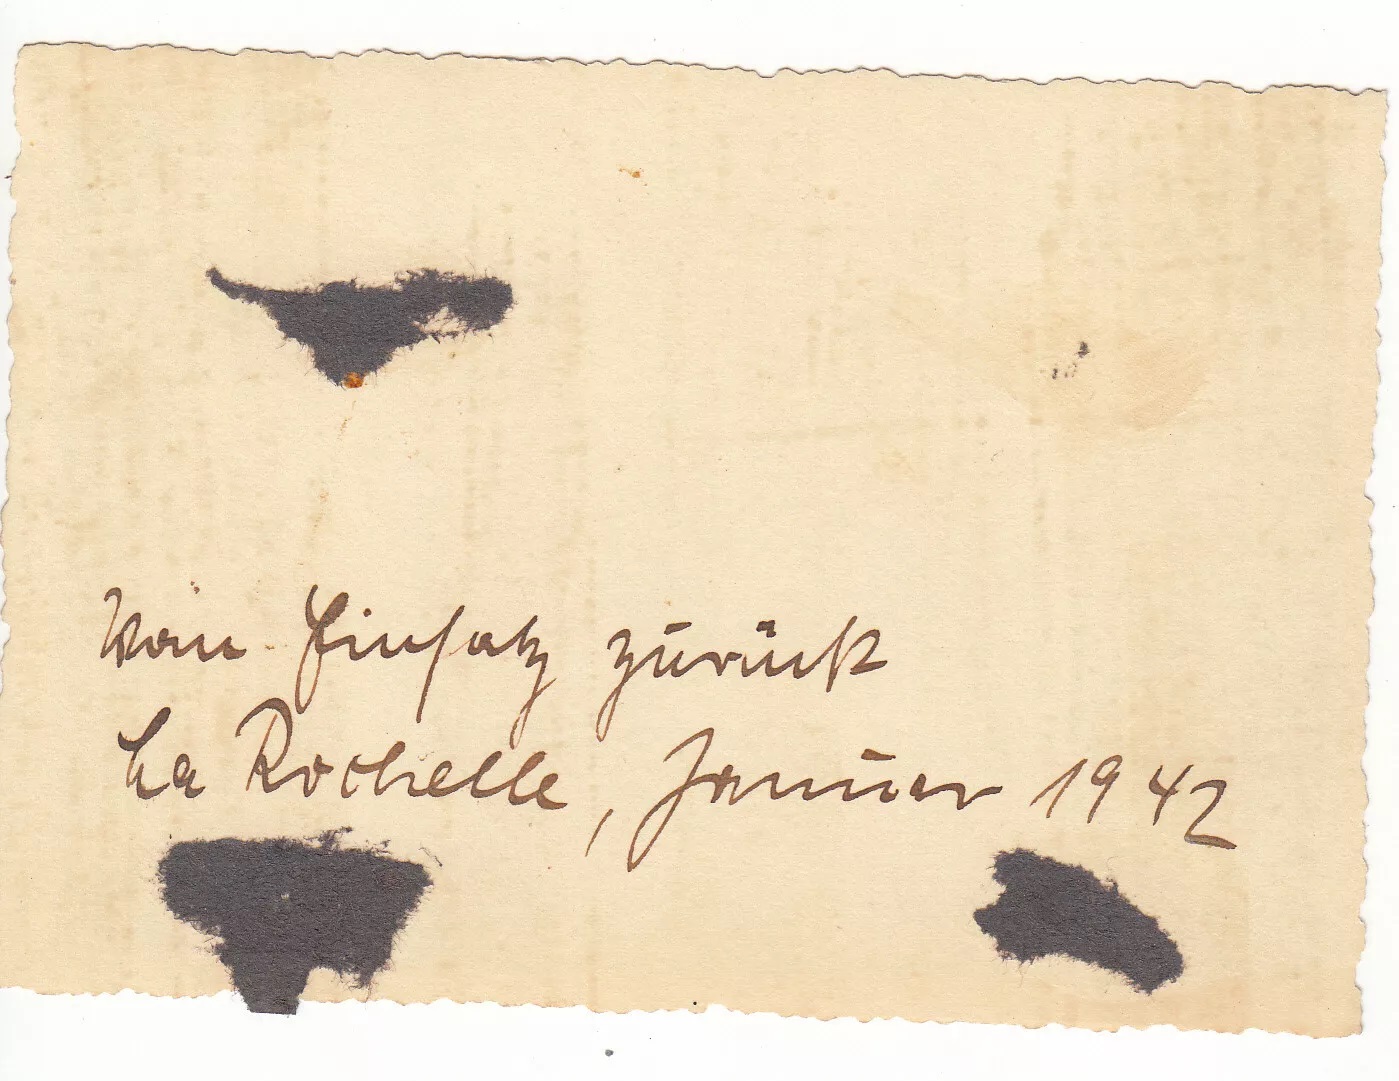 Vom Einsatz zurück
La Rochelle, Januar 1942